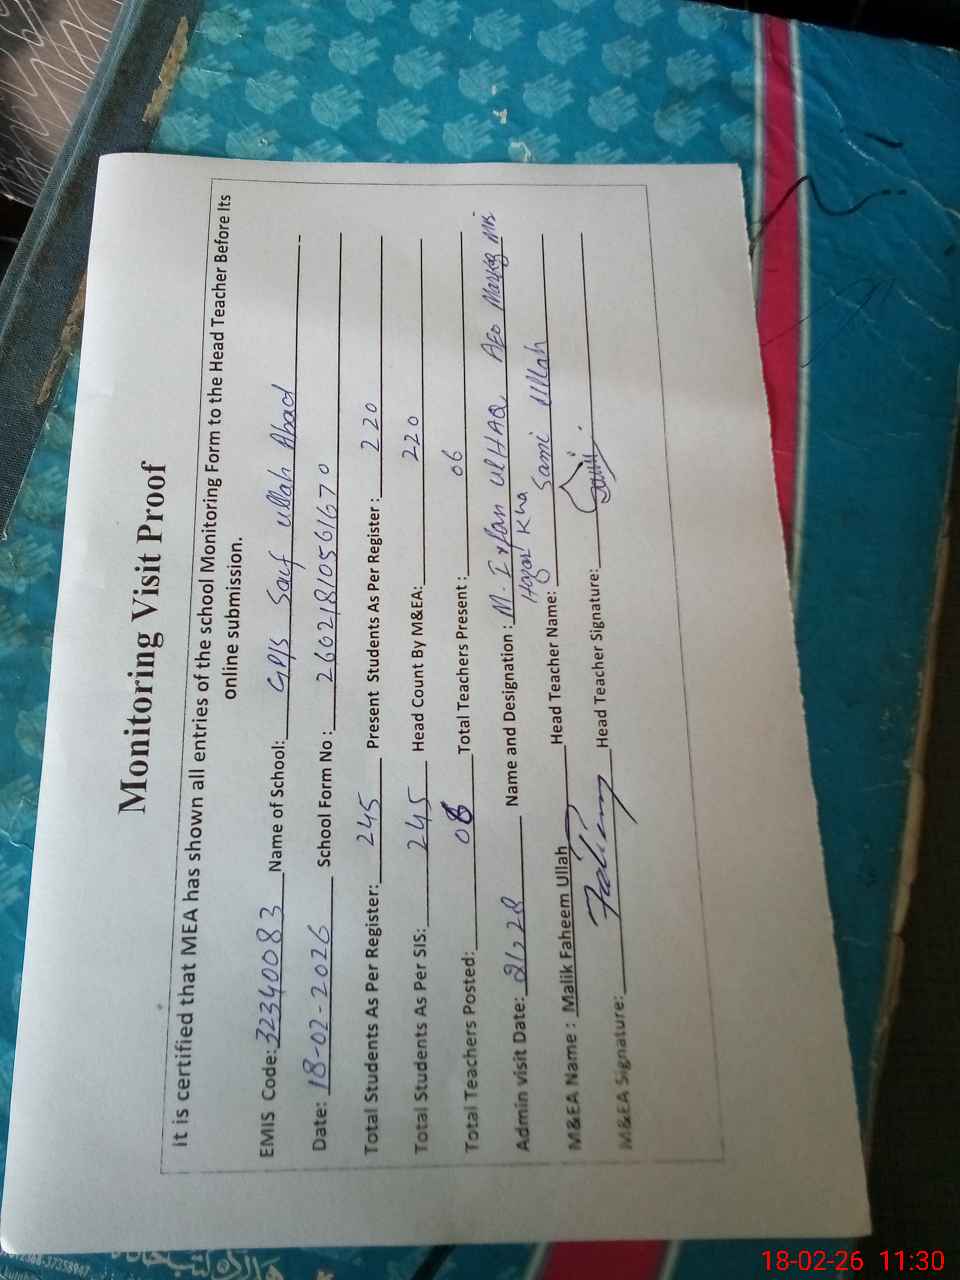 Monitoring Visit Proof
It is certified that MEA has shown all entries of the school Monitoring Form to the Head Teacher Before Its
online submission.
EMIS Code: 32340083 Name of School: GPS Saif ullah Abad
Date: 18-02-2026 School Form No : 266218105616170
Total Students As Per Register: 245 Present Students As Per Register : 220
Total Students As Per SIS: 245 Head Count By M&EA: 220
Total Teachers Posted: 06 Total Teachers Present : 06
Admin visit Date: 21,28 Name and Designation : M. Irfan ulHAQ AEO
M&EA Name : Malik Faheem Ullah Head Teacher Name: Sami Ullah
M&EA Signature: Head Teacher Signature:
18-02-26 11:30